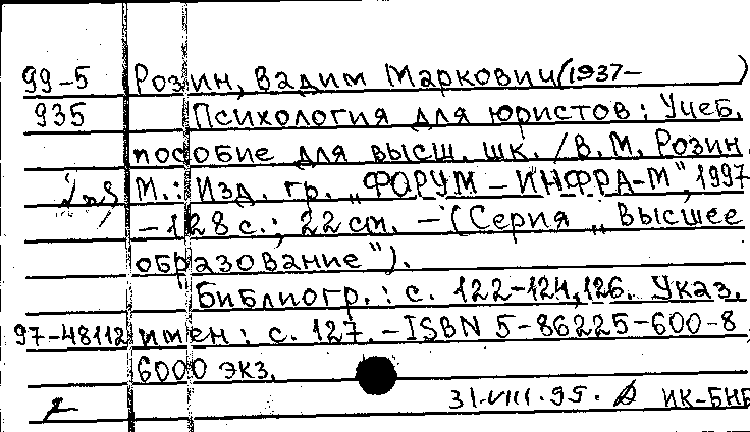 99-5 Розин, Вадим Маркович (1937- )
935 Психология для юристов: Учеб.
пособие для высш. шк. / В. М. Розин.
М.: Изд. гр. „ФОРУМ - ИНФРА-М", 1997
- 128 с.; 22 см. - (Серия „Высшее
образование").
Библиогр.: с. 122-124, 126. Указ.
97-48112 имен: с. 127. - ISBN 5-86225-600-8
6000 экз.
31.VIII.95. ИК-БНБ